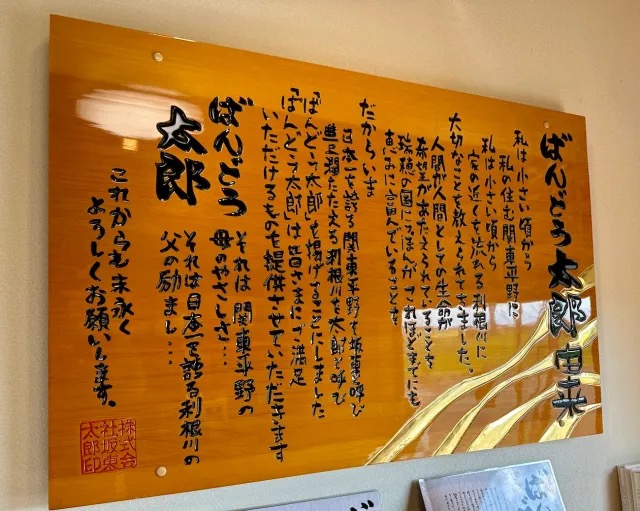 ばんどう太郎 由来
私は小さい頃から
私の住む関東平野に
私は小さい頃から
家の近くを流れる利根川に
大切なことを教えられてきました。
人間が人間としての生命が
希望があたえられていることを
瑞穂の国にっぽんがこれほどまでにも
恵みに富んでいることを
だからいま
日本一を誇る関東平野を坂東と呼び
豊潤たたえる利根川を太郎と呼び
「ばんどう太郎」を掲げることにしました
「ばんどう太郎」は皆さまにご満足
いただけるものを提供させていただきます
ばんどう
太郎
それは関東平野の
母のやさしさ…
それは日本一を誇る利根川の
父の励まし…
これからも末永く
よろしくお願いします。
株式会
社坂東
太郎印